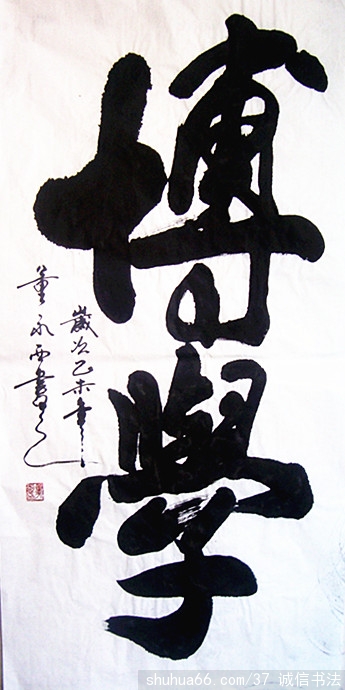 博學
歲次己未年
董永西書之
shuhua66.com/37 诚信书法